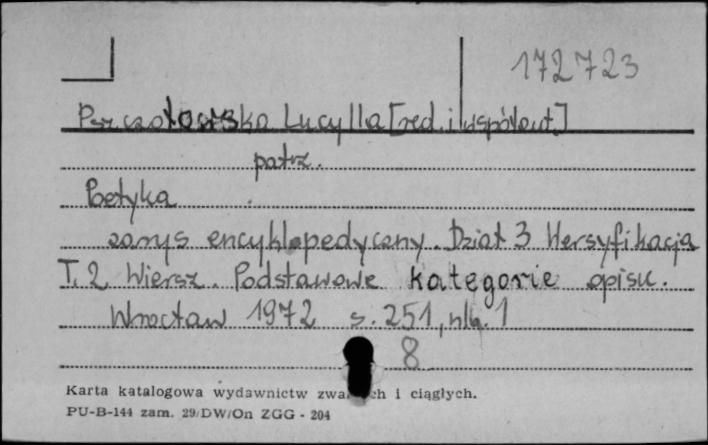 172723
Pszczołowska Lucylla [red. i współaut.]
patrz.
Poetyka
zarys encyklopedyczny. Dział 3 Wersyfikacja
T. 2 Wiersz. Podstawowe kategorie opisu.
Wrocław 1972 s. 251, nlb. 1
8
Karta katalogowa wydawnictw zwartych i ciągłych.
PU-B-144 zam. 29/DW/On ZGG - 204